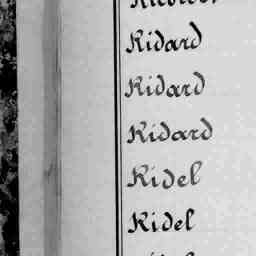 Kidard
Kidard
Kidard
Kidel
Kidel